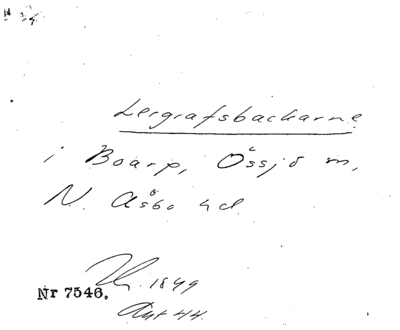 Lergrafsbackarne
i Boarp, Össjö m,
N. Åsbo hd.
1849
Nr 7546.
Ant 44.